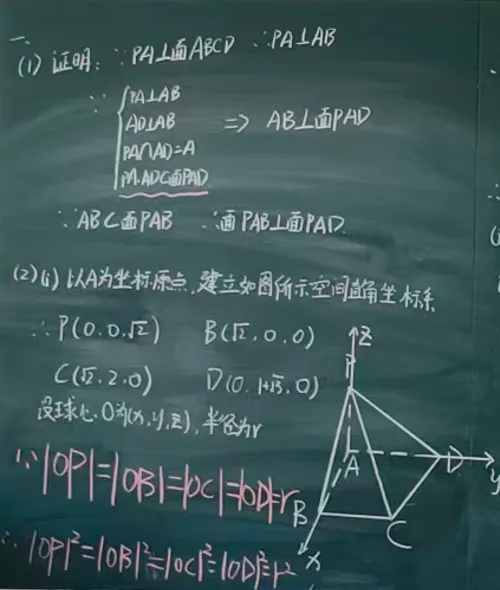 一、
(1) 证明: ∵PA⊥面ABCD ∴PA⊥AB
∵ { PA⊥AB
AD⊥AB ⇒ AB⊥面PAD
PA∩AD=A
PA.AD⊂面PAD
∵AB⊂面PAB ∴面PAB⊥面PAD.
(2)(i) 以A为坐标原点,建立如图所示空间直角坐标系
∴P(0.0.√2) B(√2,0,0)
C(√2,2,0) D(0,1+√3,0)
设球心O为(x,y,z),半径为r
∵|OP|=|OB|=|OC|=|OD|=r
∴|OP|²=|OB|²=|OC|²=|OD|²=r²
z
P
A
D
y
B
C
x